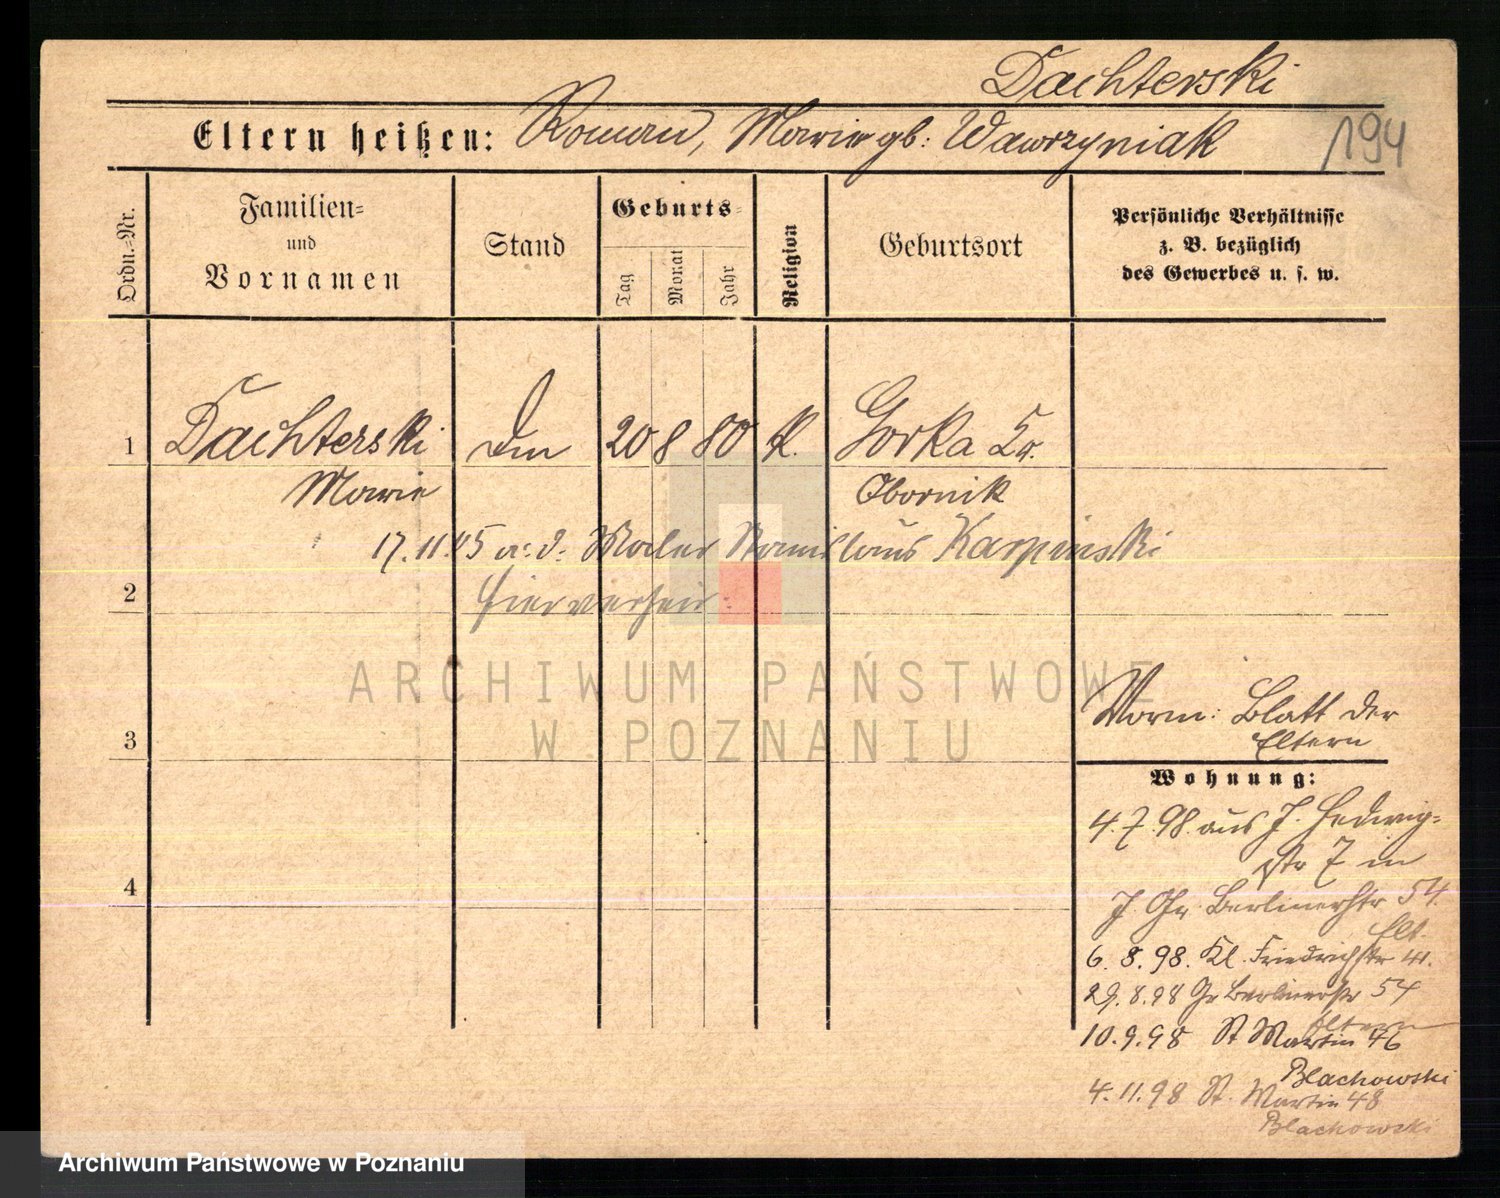 Dachterski
Eltern heißen: Roman, Marie gb: Wawrzyniak
194
Ordn.-Nr.
Familien-
und
Vornamen
Stand
Geburts-
Tag
Monat
Jahr
Religion
Geburtsort
Persönliche Verhältnisse
z. B. bezüglich
des Gewerbes u. s. w.
1 Dachterski 20 8 80 K. Gorka Kr.
Marie Obornik
17.11.05 a. d. Maler Stanislaus Karpinski
2 hier verheir:
ARCHIWUM PAŃSTWOWE
W POZNANIU
3
Vorm: Blatt der
Eltern
Wohnung:
4.7.98 aus J. Hedwig-
str 7 in
4
J. Gr. Berlinerstr 54.
Elt.
6.8.98. Kl. Friedrichstr 41.
29.8.98 Gr Berlinerstr 54
Eltern
10.9.98 St Martin 46
Blachowski
4.11.98 St. Martin 48
Blachowski
Archiwum Państwowe w Poznaniu